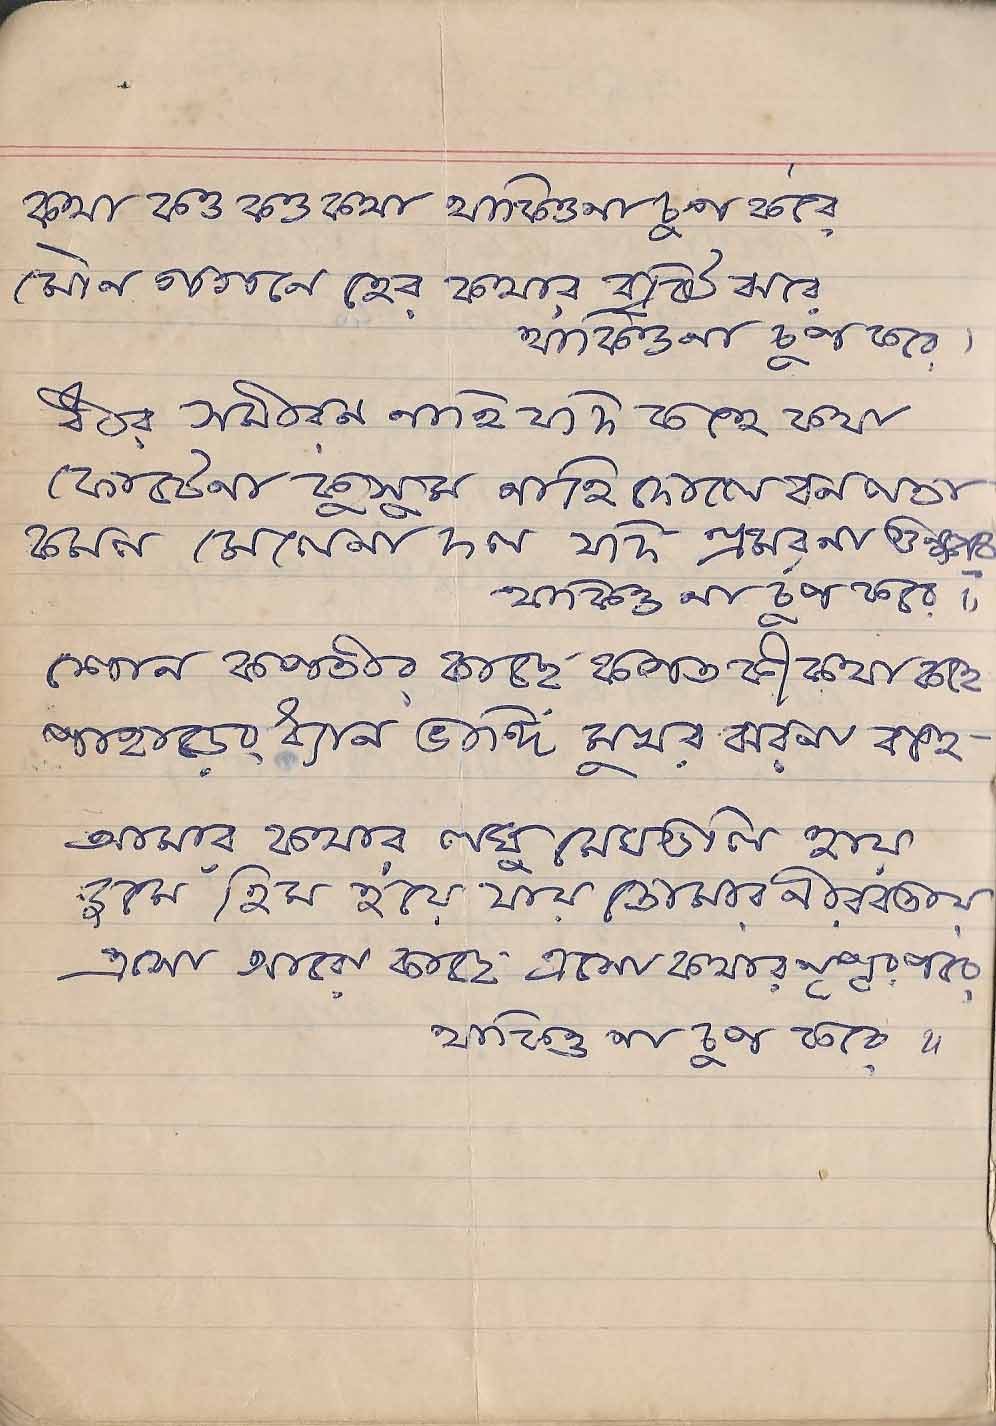 কথা কও কও কথা থাকিও না চুপ করে
মৌন গগনে হের কথার বৃষ্টি ঝরে
থাকিও না চুপ করে।
ধীর সমীরণ নাহি যদি কহে কথা
ফোটেনা কুসুম নাহি দোলে বনলতা
কমল মেলেনা দল যদি ভ্রমর না গুঞ্জরে
থাকিও না চুপ করে॥
শোন কপোতীর কাছে কপোত কী কথা কহে
পাহাড়ের ধ্যান ভাঙ্গি মুখর ঝরনা বহে-
আমার কথার লঘু মেঘগুলি হায়
জমে হিম হয়ে যায় তোমার নীরবতায়
এসো আরো কাছে এসো কথার নূপুর পরে
থাকিও না চুপ করে॥